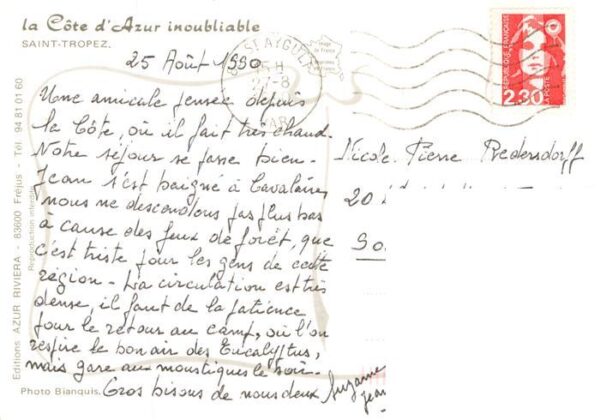 la Côte d'Azur inoubliable
SAINT-TROPEZ.
25 Août 1990
Une amicale pensée depuis
la Côte, où il fait très chaud.
Notre séjour se passe bien -
Jean s'est baigné à Cavalaire,
nous ne descendons pas plus bas
à cause des feux de forêt, que
c'est triste pour les gens de cette
région - La circulation est très
dense, il faut de la patience
pour le retour au camp, où l'on
respire le bon air des Eucalyptus,
mais gare au moustiques le soir.
Gros bisons de nous deux
Suzanne
Jean
Nicole. Pierre Redersdorff
20
Photo Bianquis.
Editions AZUR RIVIERA - 83600 Fréjus - Tél. 94 81 01 60
Reproduction interdite
REPUBLIQUE FRANÇAISE
LA POSTE
2,30
27-8
VAR